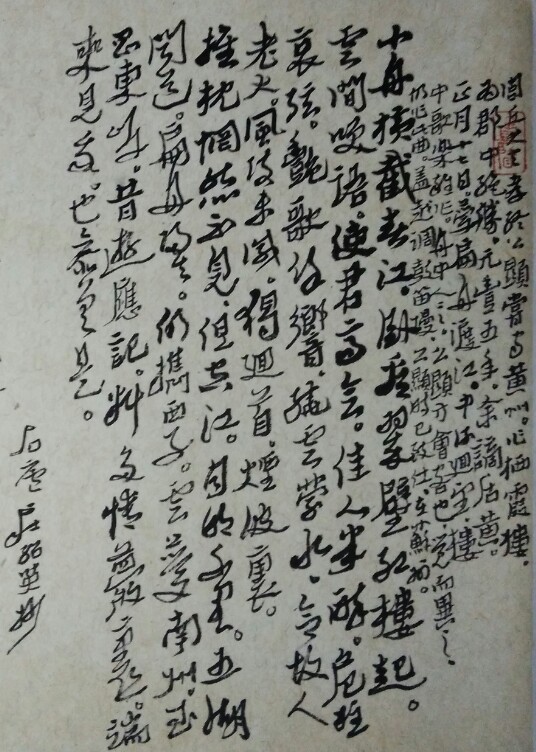 閭丘大夫孝終公顯嘗守黃州。作栖霞樓。
為郡中絕勝。元豐五年。余謫居黃。
正月十七日。夢扁舟渡江。中流回望。樓
中歌樂雜作。舟中人言。公顯方會客也。覺而異之。
乃作此曲。蓋越調鼓笛慢。公顯時已致仕。在蘇州。
小舟橫截春江。臥看翠壁紅樓起。
雲間咲語。使君高會。佳人半醉。危柱
哀絃。艷歌餘響。繞雲縈水。念故人
老大。風流未減。獨迴首。煙波裏。
推枕惘然不見。但空江。月明千里。五湖
聞道。扁舟歸去。仍攜西子。雲夢南州。武
昌東岸。昔遊應記。料多情夢裏。端
來見我。也參差是。